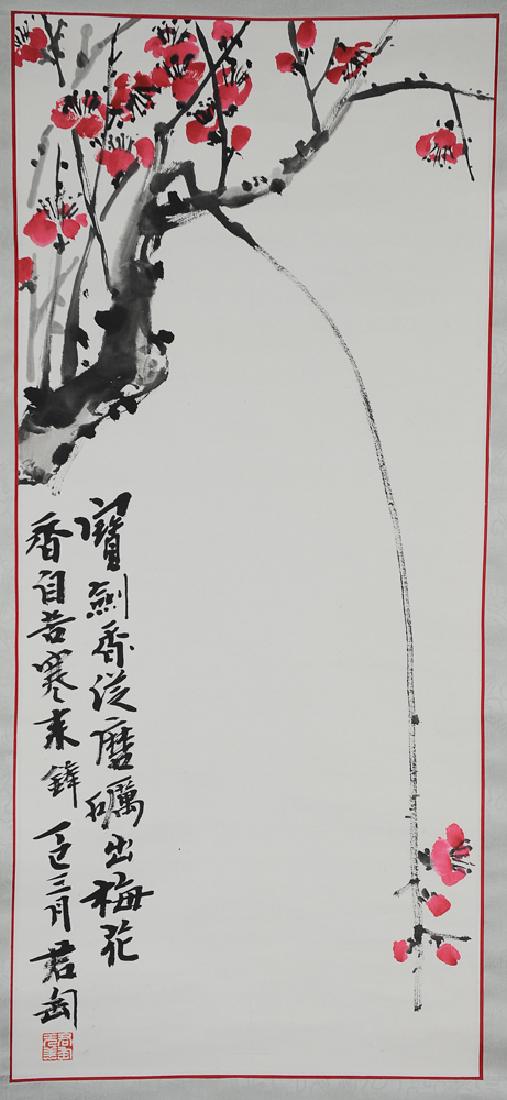 寶劍香從磨礪出梅花
香自苦寒來鋒 丁巳三月 君匋